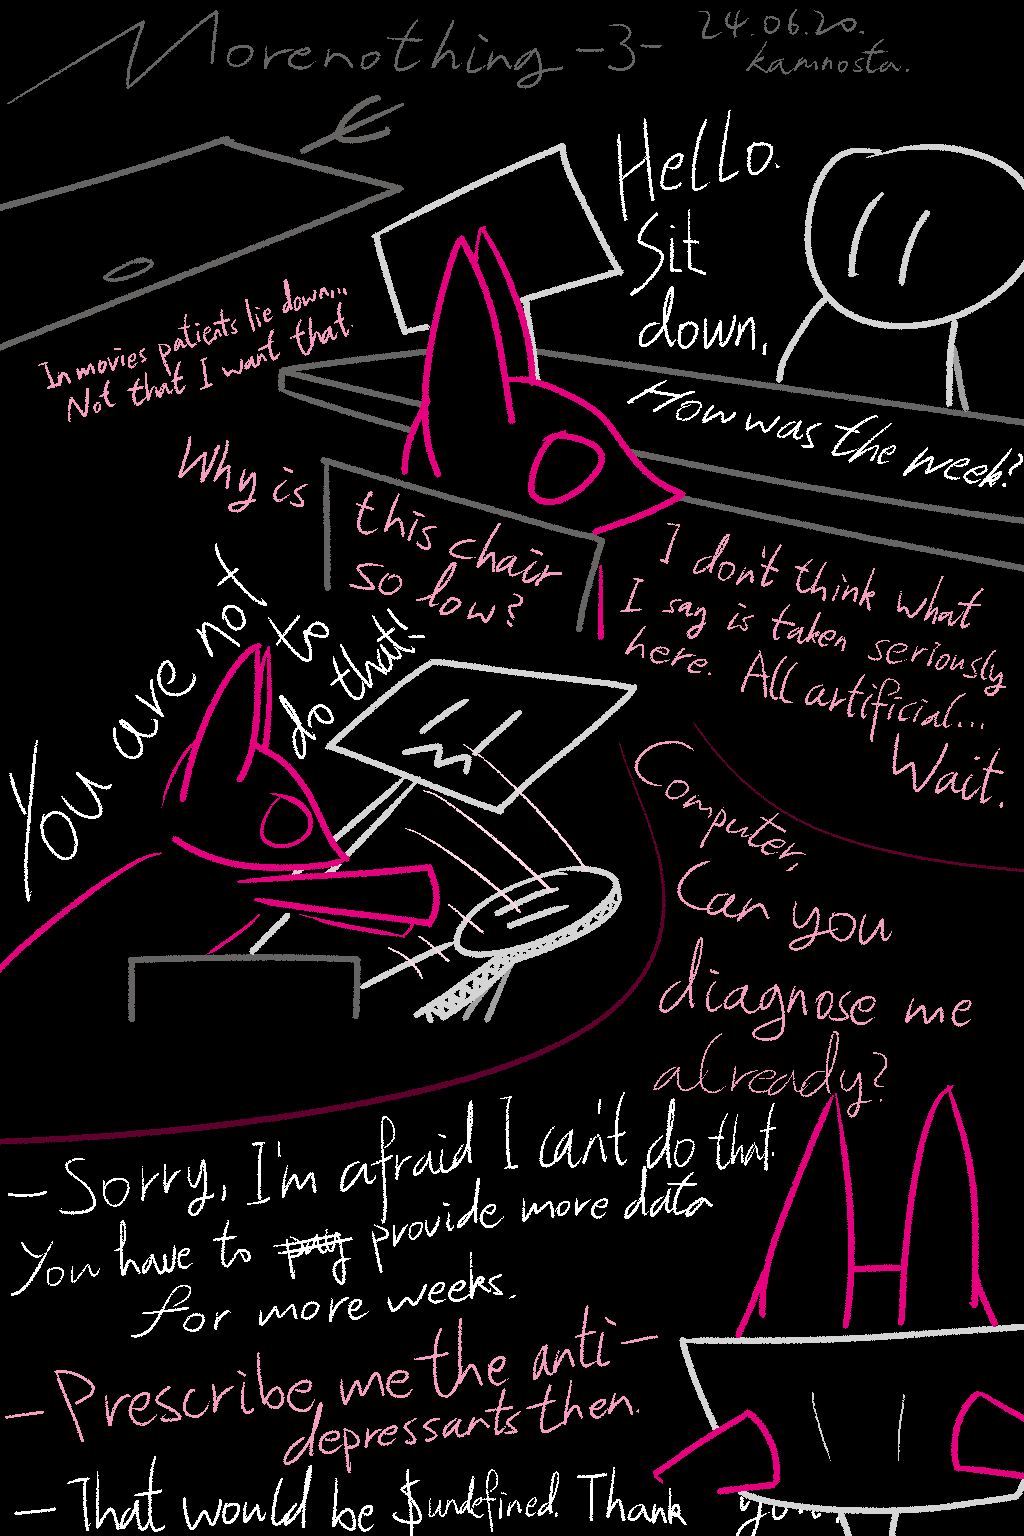 Morenothing -3-
24.06.20.
kamnosta.
Hello.
Sit
down,
In movies patients lie down...
Not that I want that.
How was the week?
Why is this chair
so low?
I don't think what
I say is taken seriously
here. All artificial...
Wait.
You are not to
do that!
Computer,
Can you
diagnose me
already?
- Sorry, I'm afraid I can't do that.
You have to pay provide more data
for more weeks.
- Prescribe me the anti-
depressants then.
- That would be $undefined. Thank you.